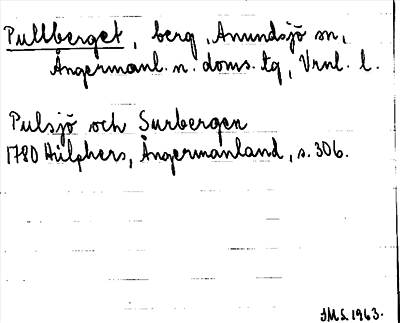 Pullberget, berg, Anundsjö sn,
Ångermanl. n. doms. tg, Vrnl. l.
Pulsjö och Surbergen
1780 Hülphers, Ångermanland, s. 306.
IMS. 1963.